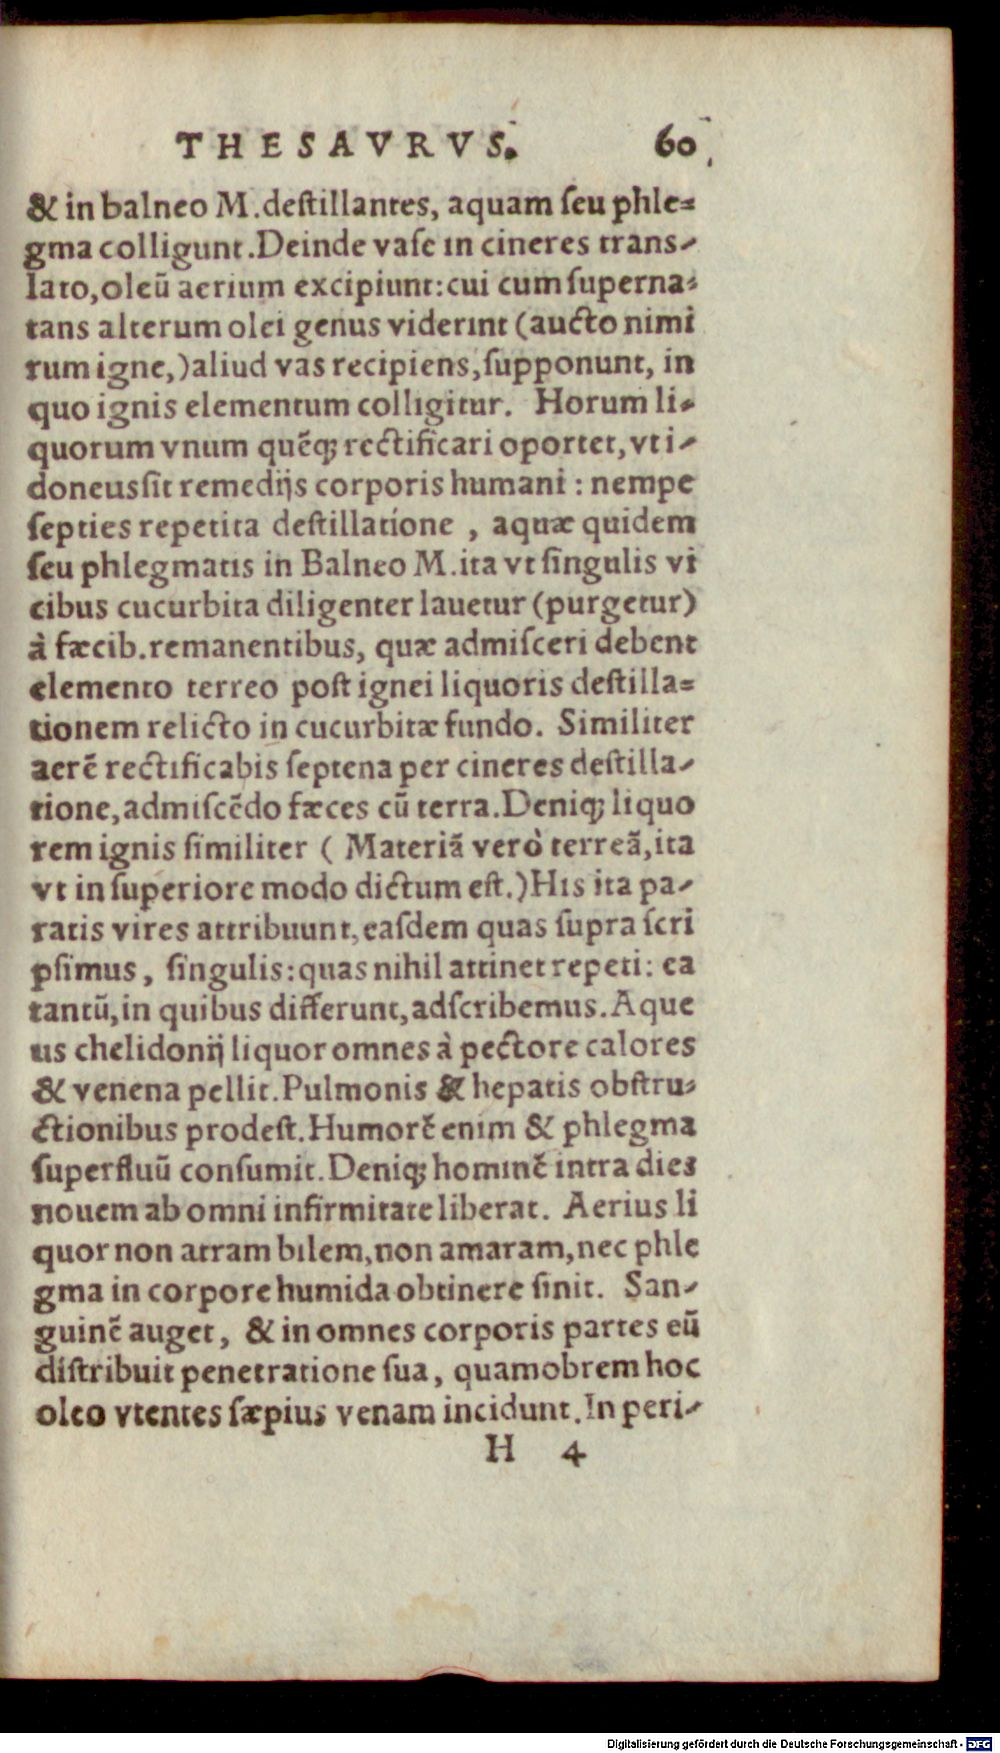 THESAVRVS. 60
& in balneo M. deſtillantes, aquam ſeu phle=
gma colligunt. Deinde vaſe in cineres trans-
lato, oleū aerium excipiunt: cui cum ſuperna-
tans alterum olei genus viderint (aucto nimi
rum igne,) aliud vas recipiens, ſupponunt, in
quo ignis elementum colligitur. Horum li-
quorum vnum quēq; rectificari oportet, vt i-
doneus ſit remedijs corporis humani : nempe
ſepties repetita deſtillatione , aquæ quidem
ſeu phlegmatis in Balneo M. ita vt ſingulis vi
cibus cucurbita diligenter lauetur (purgetur)
à fæcib. remanentibus, quæ admiſceri debent
elemento terreo poſt ignei liquoris deſtilla=
tionem relicto in cucurbitæ fundo. Similiter
aerē rectificabis ſeptena per cineres deſtilla-
tione, admiſcēdo fæces cū terra. Deniq; liquo
rem ignis ſimiliter ( Materiā verò terreā, ita
vt in ſuperiore modo dictum eſt.) His ita pa-
ratis vires attribuunt, eaſdem quas ſupra ſcri
pſimus, ſingulis: quas nihil attinet repeti: ea
tantū, in quibus differunt, adſcribemus. Aque
us chelidonij liquor omnes à pectore calores
& venena pellit. Pulmonis & hepatis obſtru-
ctionibus prodeſt. Humorē enim & phlegma
ſuperfluū conſumit. Deniq; hominē intra dies
nouem ab omni infirmitate liberat. Aerius li
quor non atram bilem, non amaram, nec phle
gma in corpore humida obtinere ſinit. San-
guinē auget, & in omnes corporis partes eū
diſtribuit penetratione ſua, quamobrem hoc
oleo vtentes ſæpius venam incidunt. In peri-
H 4
Digitalisierung gefördert durch die Deutsche Forschungsgemeinschaft - DFG